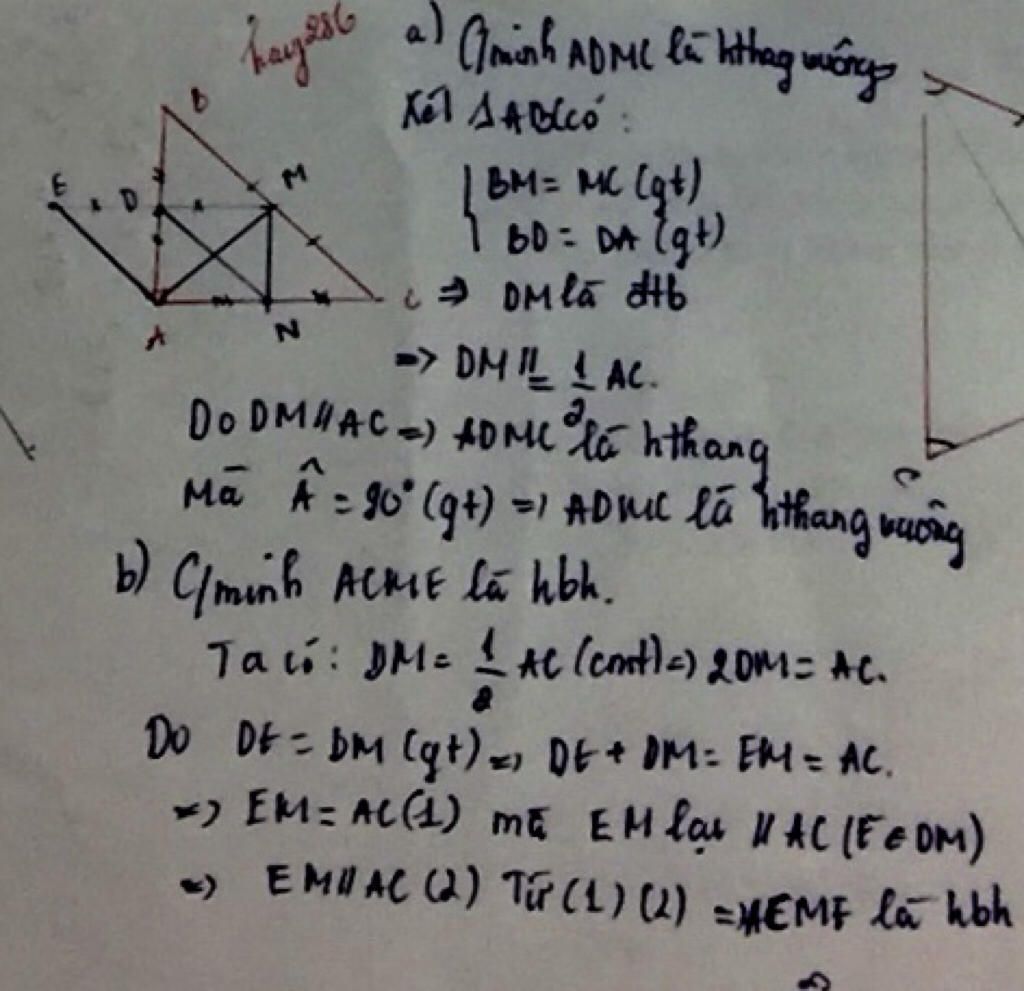 a) C/minh ADMC là hthag vuông
Xét ΔABC có:
B
E D M
A N C
{ BM = MC (gt)
BD = DA (gt)
=> DM là đtb
=> DM // = 1/2 AC.
Do DM // AC => ADMC là hthang
Mà Â = 90° (gt) => ADMC là hthang vuông
b) C/minh ACME là hbh.
Ta có: DM = 1/2 AC (cmt) => 2DM = AC.
Do DE = DM (gt) => DE + DM = EM = AC.
=> EM = AC (1) mà EM lại // AC (E ∈ DM)
=> EM // AC (2) Từ (1) (2) => là hbh